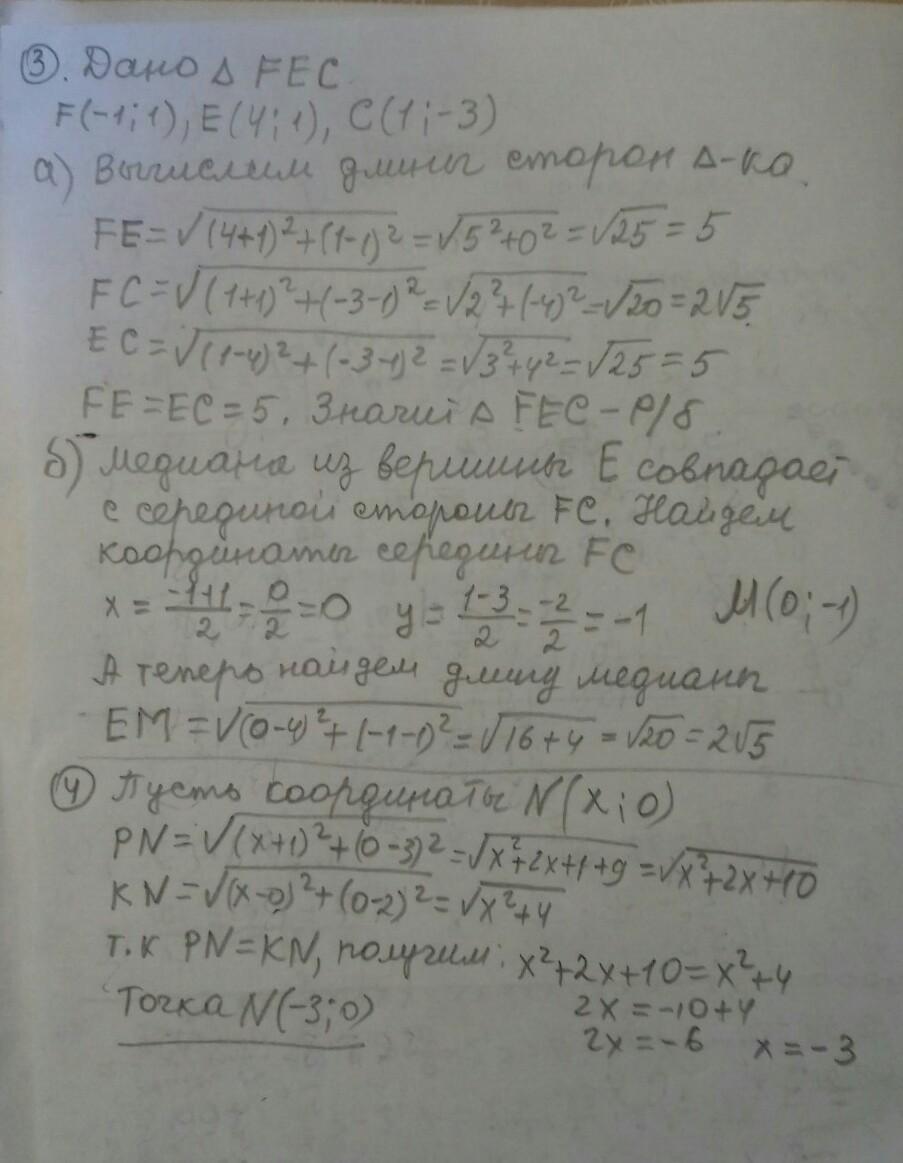 ③. Дано △ FEC
F(-1;1), E(4;1), C(1;-3)
а) Вычислим длины сторон △-ка.
FE=√((4+1)²+(1-1)²)=√(5²+0²)=√25=5
FC=√((1+1)²+(-3-1)²)=√(2²+(-4)²)=√20=2√5.
EC=√((1-4)²+(-3-1)²)=√(3²+4²)=√25=5
FE=EC=5. Значит △ FEC – Р/б
б) Медиана из вершины E совпадает
с серединой стороны FC. Найдем
координаты середины FC
x = (-1+1)/2 = 0/2 = 0 y = (1-3)/2 = -2/2 = -1 M(0;-1)
А теперь найдем длину медианы
EM=√((0-4)²+(-1-1)²)=√(16+4)=√20=2√5
④ Пусть координаты N(x;0)
PN=√((x+1)²+(0-3)²)=√(x²+2x+1+9)=√(x²+2x+10)
KN=√((x-0)²+(0-2)²)=√(x²+4)
т.к PN=KN, получим: x²+2x+10=x²+4
Точка N(-3;0) 2x=-10+4
2x=-6 x=-3